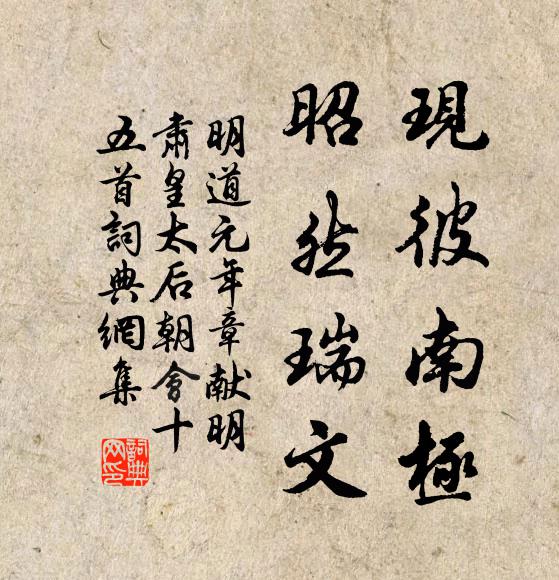 現彼南極
昭然瑞文
明道元年章献明
肅皇太后朝會十
五首詞典網集
詞典
网印